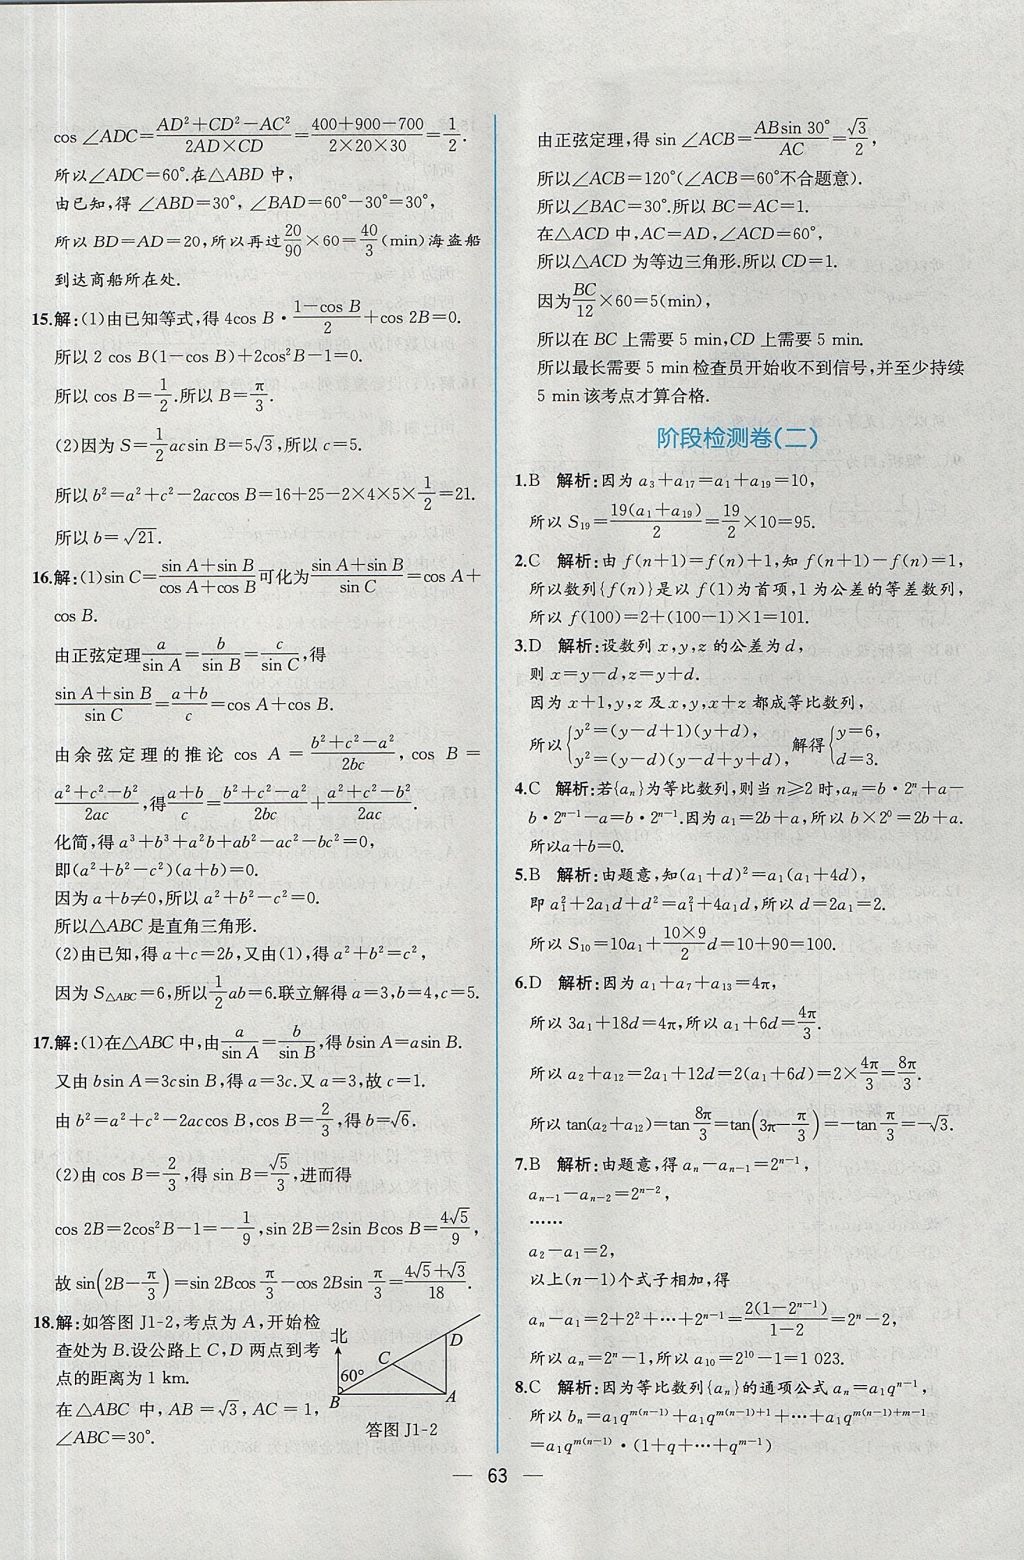 cos ∠ADC=(AD²+CD²-AC²)/(2AD×CD)=(400+900-700)/(2×20×30)=1/2.
所以∠ADC=60°.在△ABD 中,
由已知,得 ∠ABD=30°, ∠BAD=60°-30°=30°,
所以 BD=AD=20,所以再过20/90×60=40/3(min)海盗船
到达商船所在处.
15.解:(1)由已知等式,得 4cos B·(1-cos B)/2+cos 2B=0.
所以 2 cos B(1-cos B)+2cos²B-1=0.
所以 cos B=1/2.所以 B=π/3.
(2)因为 S=1/2acsin B=5√3,所以 c=5.
所以 b²=a²+c²-2accos B=16+25-2×4×5×1/2=21.
所以 b=√21.
16.解:(1)sin C=(sin A+sin B)/(cos A+cos B)可化为(sin A+sin B)/(sin C)=cos A+
cos B.
由正弦定理a/sin A=b/sin B=c/sin C,得
(sin A+sin B)/(sin C)=(a+b)/c=cos A+cos B.
由余弦定理的推论 cos A=(b²+c²-a²)/(2bc), cos B=
(a²+c²-b²)/(2ac),得(a+b)/c=(b²+c²-a²)/(2bc)+(a²+c²-b²)/(2ac).
化简,得 a³+b³+a²b+ab²-ac²-bc²=0,
即(a²+b²-c²)(a+b)=0.
因为 a+b≠0,所以 a²+b²-c²=0.
所以△ABC 是直角三角形.
(2)由已知,得 a+c=2b,又由(1),得 a²+b²=c²,
因为 S△ABC=6,所以1/2ab=6.联立解得 a=3,b=4,c=5.
17.解:(1)在△ABC 中,由a/sin A=b/sin B,得 bsin A=asin B.
又由 bsin A=3csin B,得 a=3c.又 a=3,故 c=1.
由 b²=a²+c²-2accos B,cos B=2/3,得 b=√6.
(2)由 cos B=2/3,得 sin B=√5/3,进而得
cos 2B=2cos²B-1=-1/9,sin 2B=2sin Bcos B=4√5/9,
故 sin(2B-π/3)=sin 2Bcos π/3-cos 2Bsin π/3=(4√5+√3)/18.
18.解:如答图 J1-2,考点为 A,开始检
查处为 B.设公路上 C,D 两点到考
点的距离为 1 km.
在△ABC 中, AB=√3, AC=1,
∠ABC=30°.
北
D
C
60°
B
A
答图 J1-2
由正弦定理,得 sin ∠ACB=(ABsin 30°)/AC=√3/2,
所以∠ACB=120°(∠ACB=60°不合题意).
所以∠BAC=30°.所以 BC=AC=1.
在△ACD 中,AC=AD,∠ACD=60°,
所以△ACD 为等边三角形.所以 CD=1.
因为BC/12×60=5(min),
所以在 BC 上需要 5 min,CD 上需要 5 min.
所以最长需要 5 min 检查员开始收不到信号,并至少持续
5 min 该考点才算合格.
阶段检测卷(二)
1.B 解析:因为 a₃+a₁₇=a₁+a₁₉=10,
所以 S₁₉=19(a₁+a₁₉)/2=19/2×10=95.
2.C 解析:由 f(n+1)=f(n)+1,知 f(n+1)-f(n)=1,
所以数列{f(n)}是以 f(1)为首项,1 为公差的等差数列,
所以 f(100)=2+(100-1)×1=101.
3.D 解析:设数列 x,y,z 的公差为 d,
则 x=y-d,z=y+d.
因为 x+1,y,z 及 x,y,x+z 都成等比数列,
所以{y²=(y-d+1)(y+d), y²=(y-d)(y-d+y+d), 解得{y=6, d=3.
4.C 解析:若{aₙ}为等比数列,则当 n≥2 时,aₙ=b·2ⁿ+a-
b·2ⁿ⁻¹-a=b·2ⁿ⁻¹.因为 a₁=2b+a,所以 b×2⁰=2b+a.
所以a+b=0.
5.B 解析:由题意,知(a₁+d)²=a₁(a₁+4d),
即 a₁²+2a₁d+d²=a₁²+4a₁d,所以 d=2a₁=2.
所以 S₁₀=10a₁+(10×9)/2d=10+90=100.
6.D 解析:因为 a₁+a₇+a₁₃=4π,
所以 3a₁+18d=4π,所以 a₁+6d=4π/3.
所以 a₂+a₁₂=2a₁+12d=2(a₁+6d)=2×4π/3=8π/3.
所以 tan(a₂+a₁₂)=tan8π/3=tan(3π-π/3)=-tanπ/3=-√3.
7.B 解析:由题意,得 aₙ-aₙ₋₁=2ⁿ⁻¹,
aₙ₋₁-aₙ₋₂=2ⁿ⁻²,
……
a₂-a₁=2,
以上(n-1)个式子相加,得
aₙ-a₁=2+2²+…+2ⁿ⁻¹=2(1-2ⁿ⁻¹)/(1-2)=2ⁿ-2,
所以 aₙ=2ⁿ-1,所以 a₁₀=2¹⁰-1=1 023.
8.C 解析:因为等比数列{aₙ}的通项公式 aₙ=a₁qⁿ⁻¹,
所以 bₙ=a₁q^(m(n-1))+a₁q^(m(n-1)+1)+…+a₁q^(m(n-1)+m-1)
=a₁q^(m(n-1))·(1+q+…+q^(m-1))
— 63 —